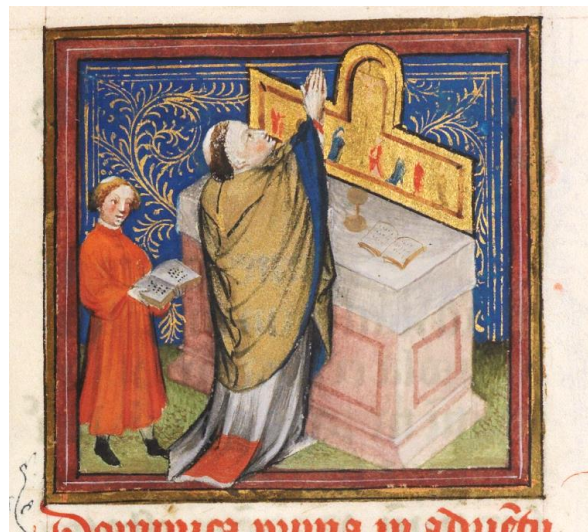 Dominica prima in aduētu